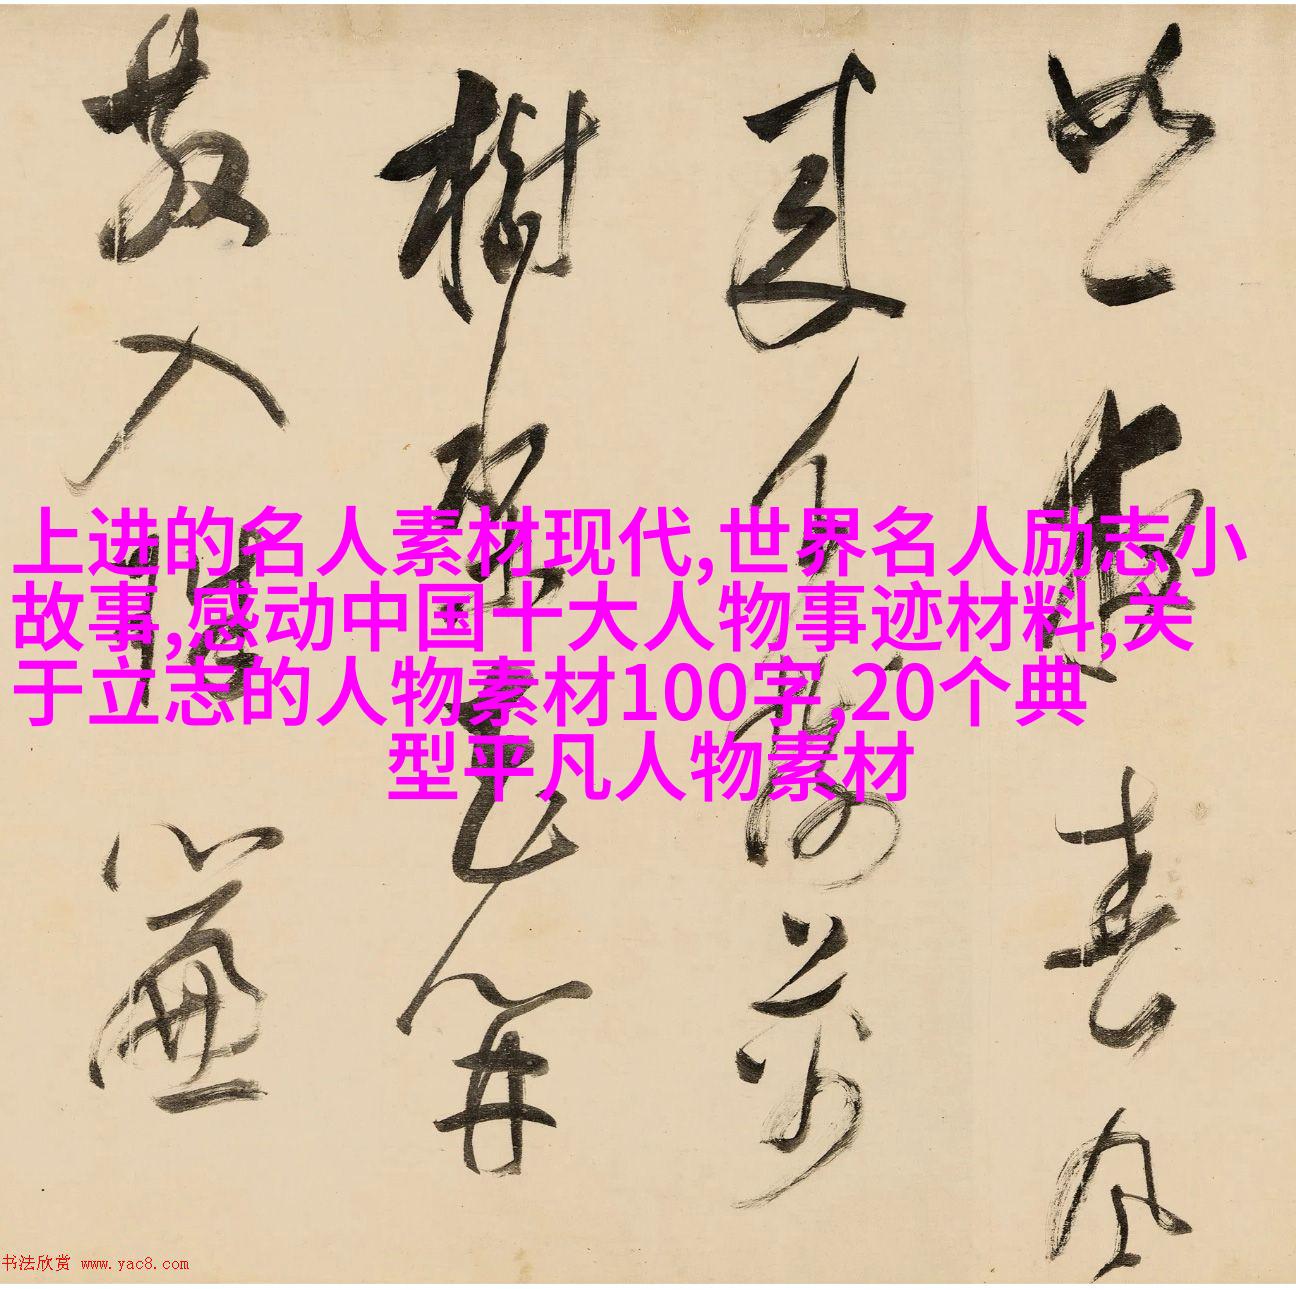 如一夜春風
來千樹萬
樹梨花開
散入珠簾
上进的名人素材现代,世界名人励志小
故事,感动中国十大人物事迹材料,关
于立志的人物素材100字,20个典
型平凡人物素材
书法欣赏 www.yac8.com